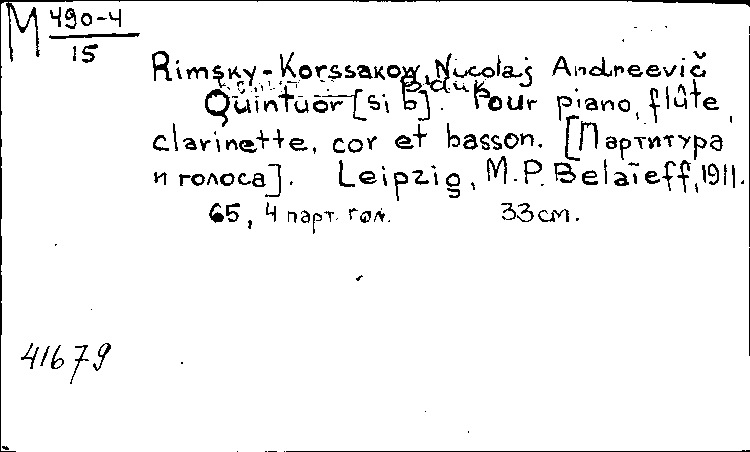 M 490-4
15
Rimsky-Korssakow, Nicolaj Andreevič
Quintuor [si b]. Pour piano, flûte,
clarinette, cor et basson. [Партитура
и голоса]. Leipzig, M.P. Belaïeff, 1911.
65, 4 парт. гол. 33 см.
41679